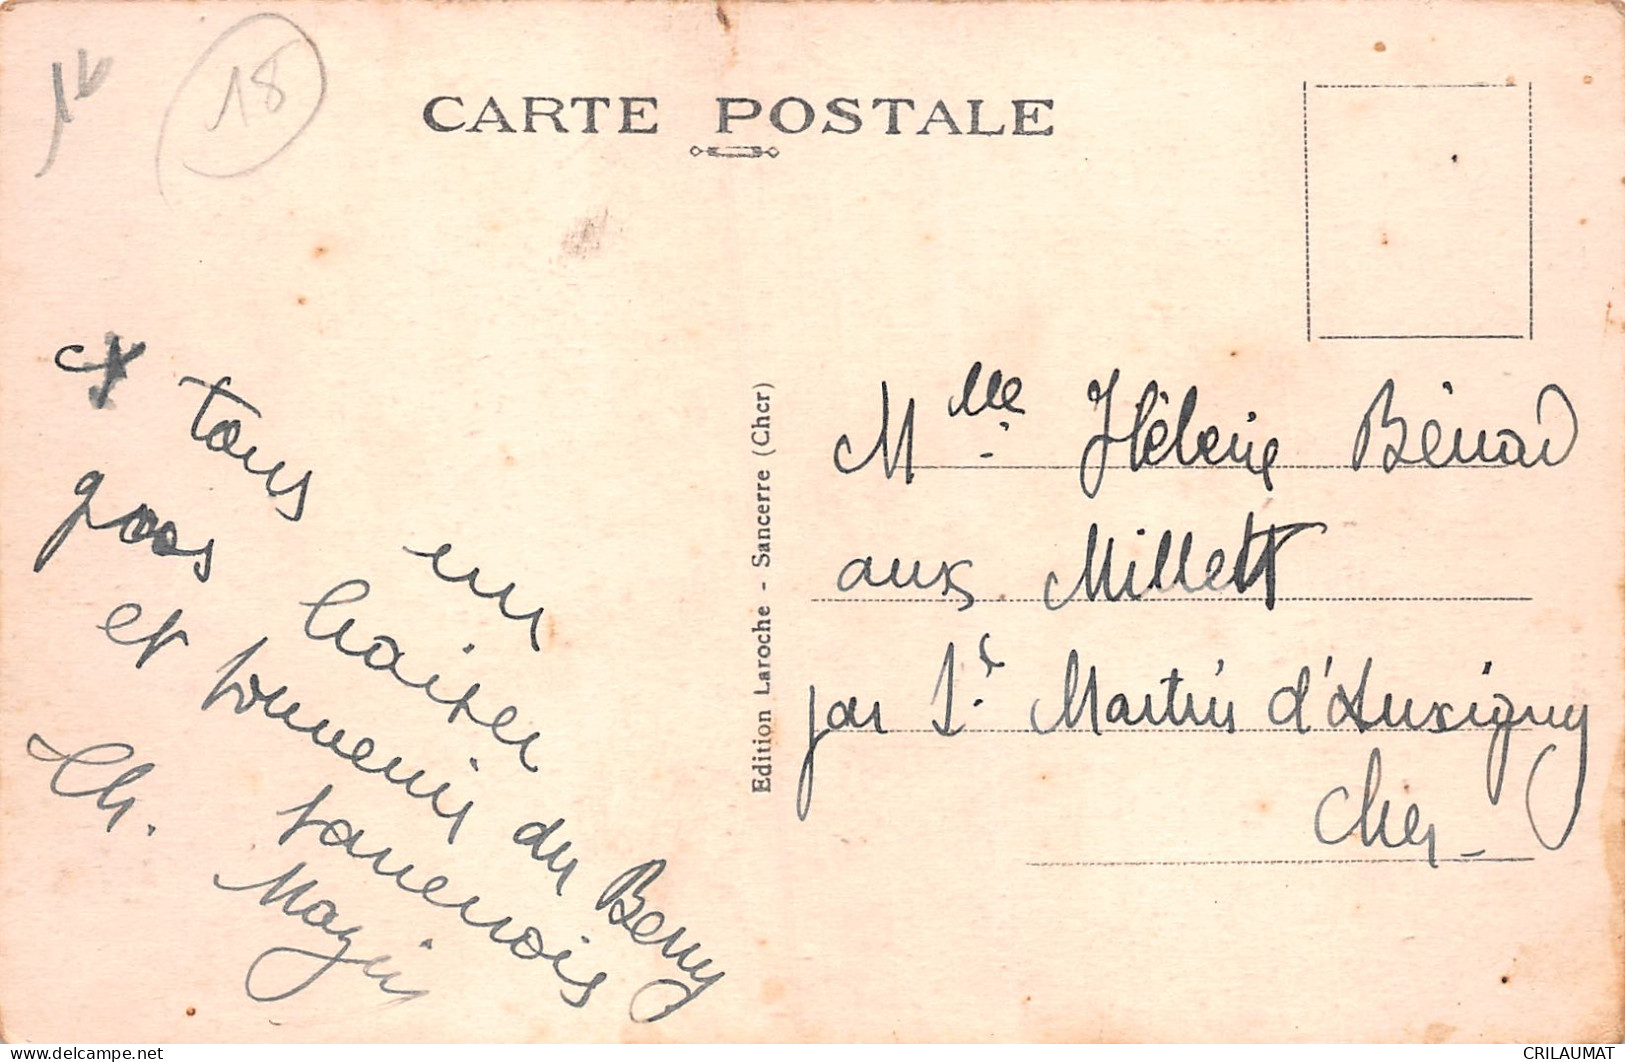 18
CARTE POSTALE
A tous un
gros baiser
et souvenir du Berry
sancerrois
Ch. Mazin
Edition Laroche - Sancerre (Cher)
Mlle Hélène Bénard
aux Millets
par St Martin d'Auxigny
Cher
CRILAUMAT